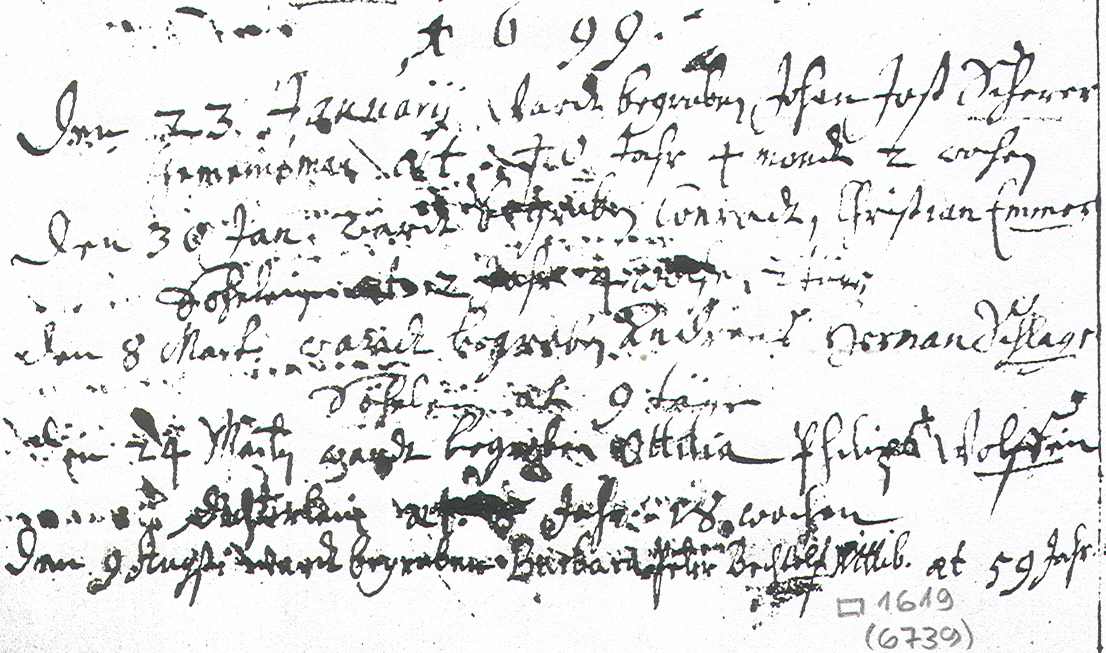 1699.
Den 23 Januarij wardt begraben Johan Jost Scherer
æt. 70 Jahr 4 mondt 2 wochen
Den 30 Jan. wardt begraben Conradt, Christian Emmes
Söhelein æt 2 Jahr 4 woch, 2 täge
den 8 Marti wardt begraben Andreas Herman Schlags
Söhelein æt 9 täge
den 24 Martij wardt begraben Ottilia Philips Wolffen
Döchterlein æt. Jahr 18 wochen
Den 9 August wardt begraben Barbara Peter Wittib. æt 59 Jahr
1619
(6739)